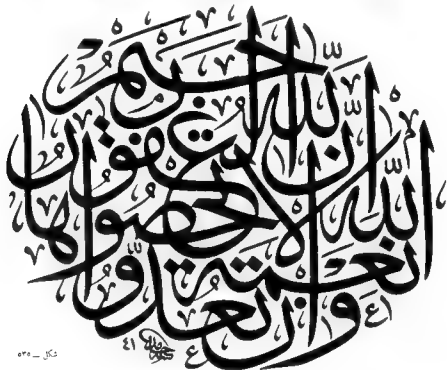 وإن تعدوا نعمة الله لا تحصوها إن الله لغفور رحيم
٤١
شكل — ٥٣٥